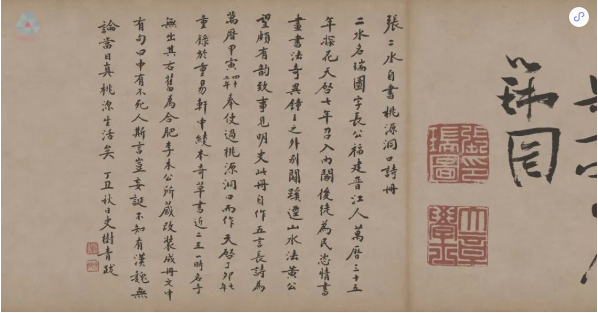 瑞圖
張二水自書桃源洞口詩冊
二水名瑞圖字長公福建晉江人萬曆三十五
年探花天啓七年召入內閣後徒為民恣情書
畫書法奇異鍾王之外別闢蹊逕山水法黃公
望頗有韵致事見明史此冊自作五言長詩為
萬曆甲寅奉使過桃源洞口而作天啓丁卯
重錄於重易軒中綾本奇草書近二三一時名手
無出其右舊為合肥李木公所藏改裝成冊文中
有句曰中有不死人斯言豈妄誕不知有漢魏無
論當日真桃源生活矣 丁丑秋日史樹青跋